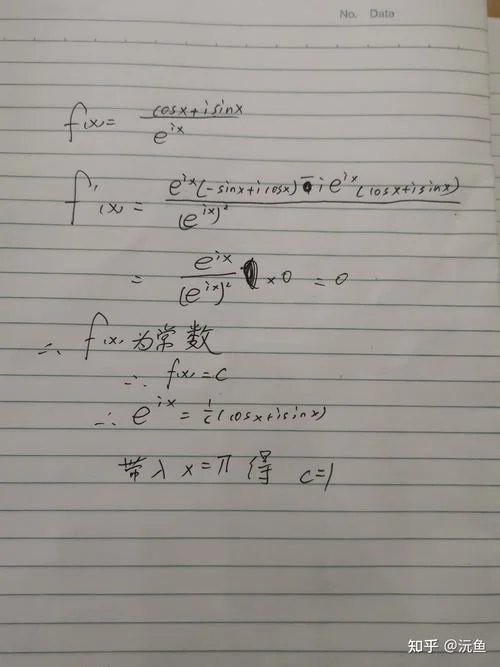 No. Date
f(x) = (cosx+isinx)/e^{ix}
f'(x) = (e^{ix}(-sinx+icosx) - ie^{ix}(cosx+isinx))/(e^{ix})²
= e^{ix}/(e^{ix})² × 0 = 0
∴ f(x) 为常数
∴ f(x) = C
∴ e^{ix} = 1/c (cosx+isinx)
带入 x=π 得 c=1
知乎 @沅鱼